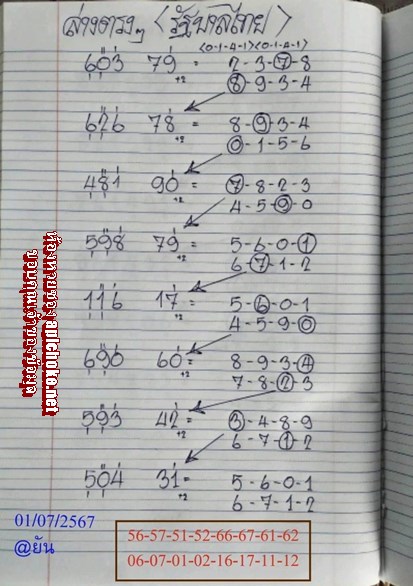 ล่างตรงๆ <รัฐบาลไทย>
<0-1-4-1><0-1-4-1>
603 79 = 2-3-7-8
+2 8-9-3-4
626 78 = 8-9-3-4
+2 0-1-5-6
481 90 = 7-8-2-3
+2 4-5-9-0
598 79 = 5-6-0-1
+2 6-7-1-2
116 17 = 5-6-0-1
+2 4-5-9-0
690 60 = 8-9-3-4
+2 7-8-2-3
593 42 = 3-4-8-9
+2 6-7-1-2
504 31 = 5-6-0-1
+2 6-7-1-2
ห้องหวยซอง aplchoke.net
ขอบคุณเจ้าของข้อมูล
01/07/2567
@ยัน
56-57-51-52-66-67-61-62
06-07-01-02-16-17-11-12